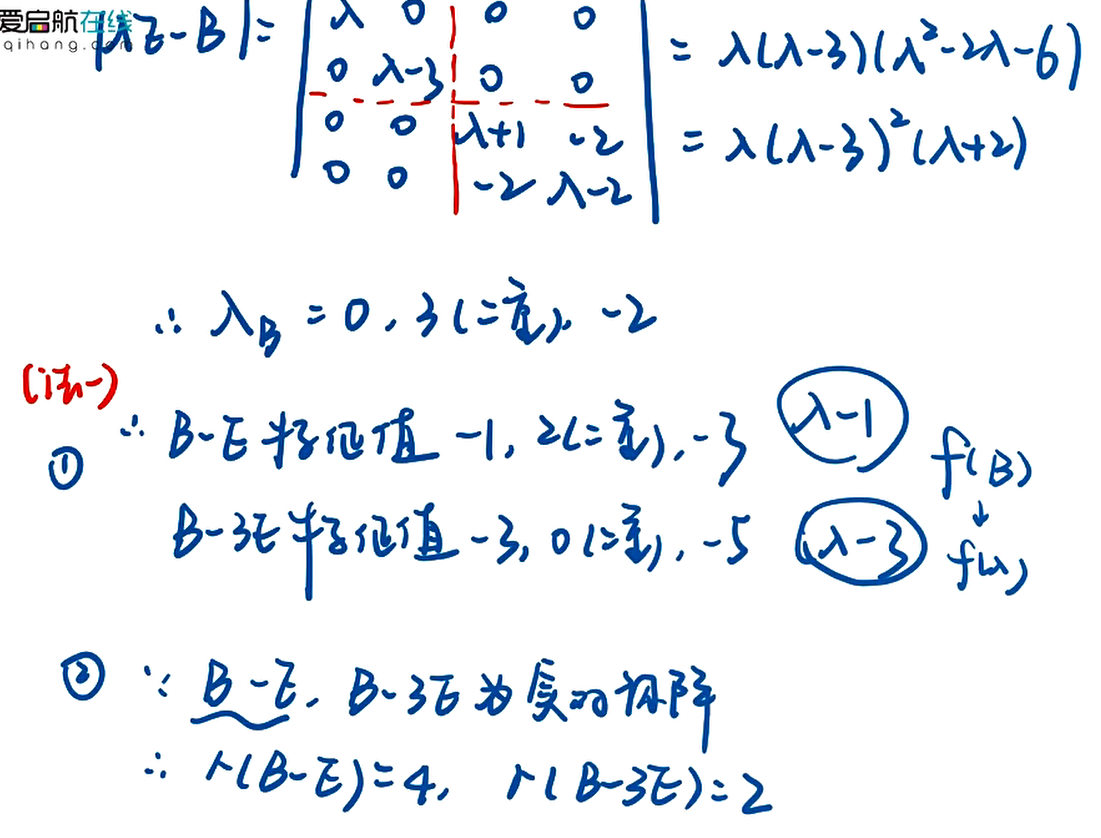 爱启航在线
qihang.com
|λE-B| = | λ 0 0 0 | = λ(λ-3)(λ²-2λ-6)
0 λ-3 0 0
0 0 λ+1 -2 = λ(λ-3)²(λ+2)
0 0 -2 λ-2
∴ λ_B = 0, 3(二重), -2
(法一)
① ∴ B-E 特征值 -1, 2(二重), -3 λ-1 f(B)
B-3E 特征值 -3, 0(二重), -5 λ-3 ↓ f(λ)
② ∵ B-E, B-3E 为实对称阵
∴ r(B-E)=4, r(B-3E)=2